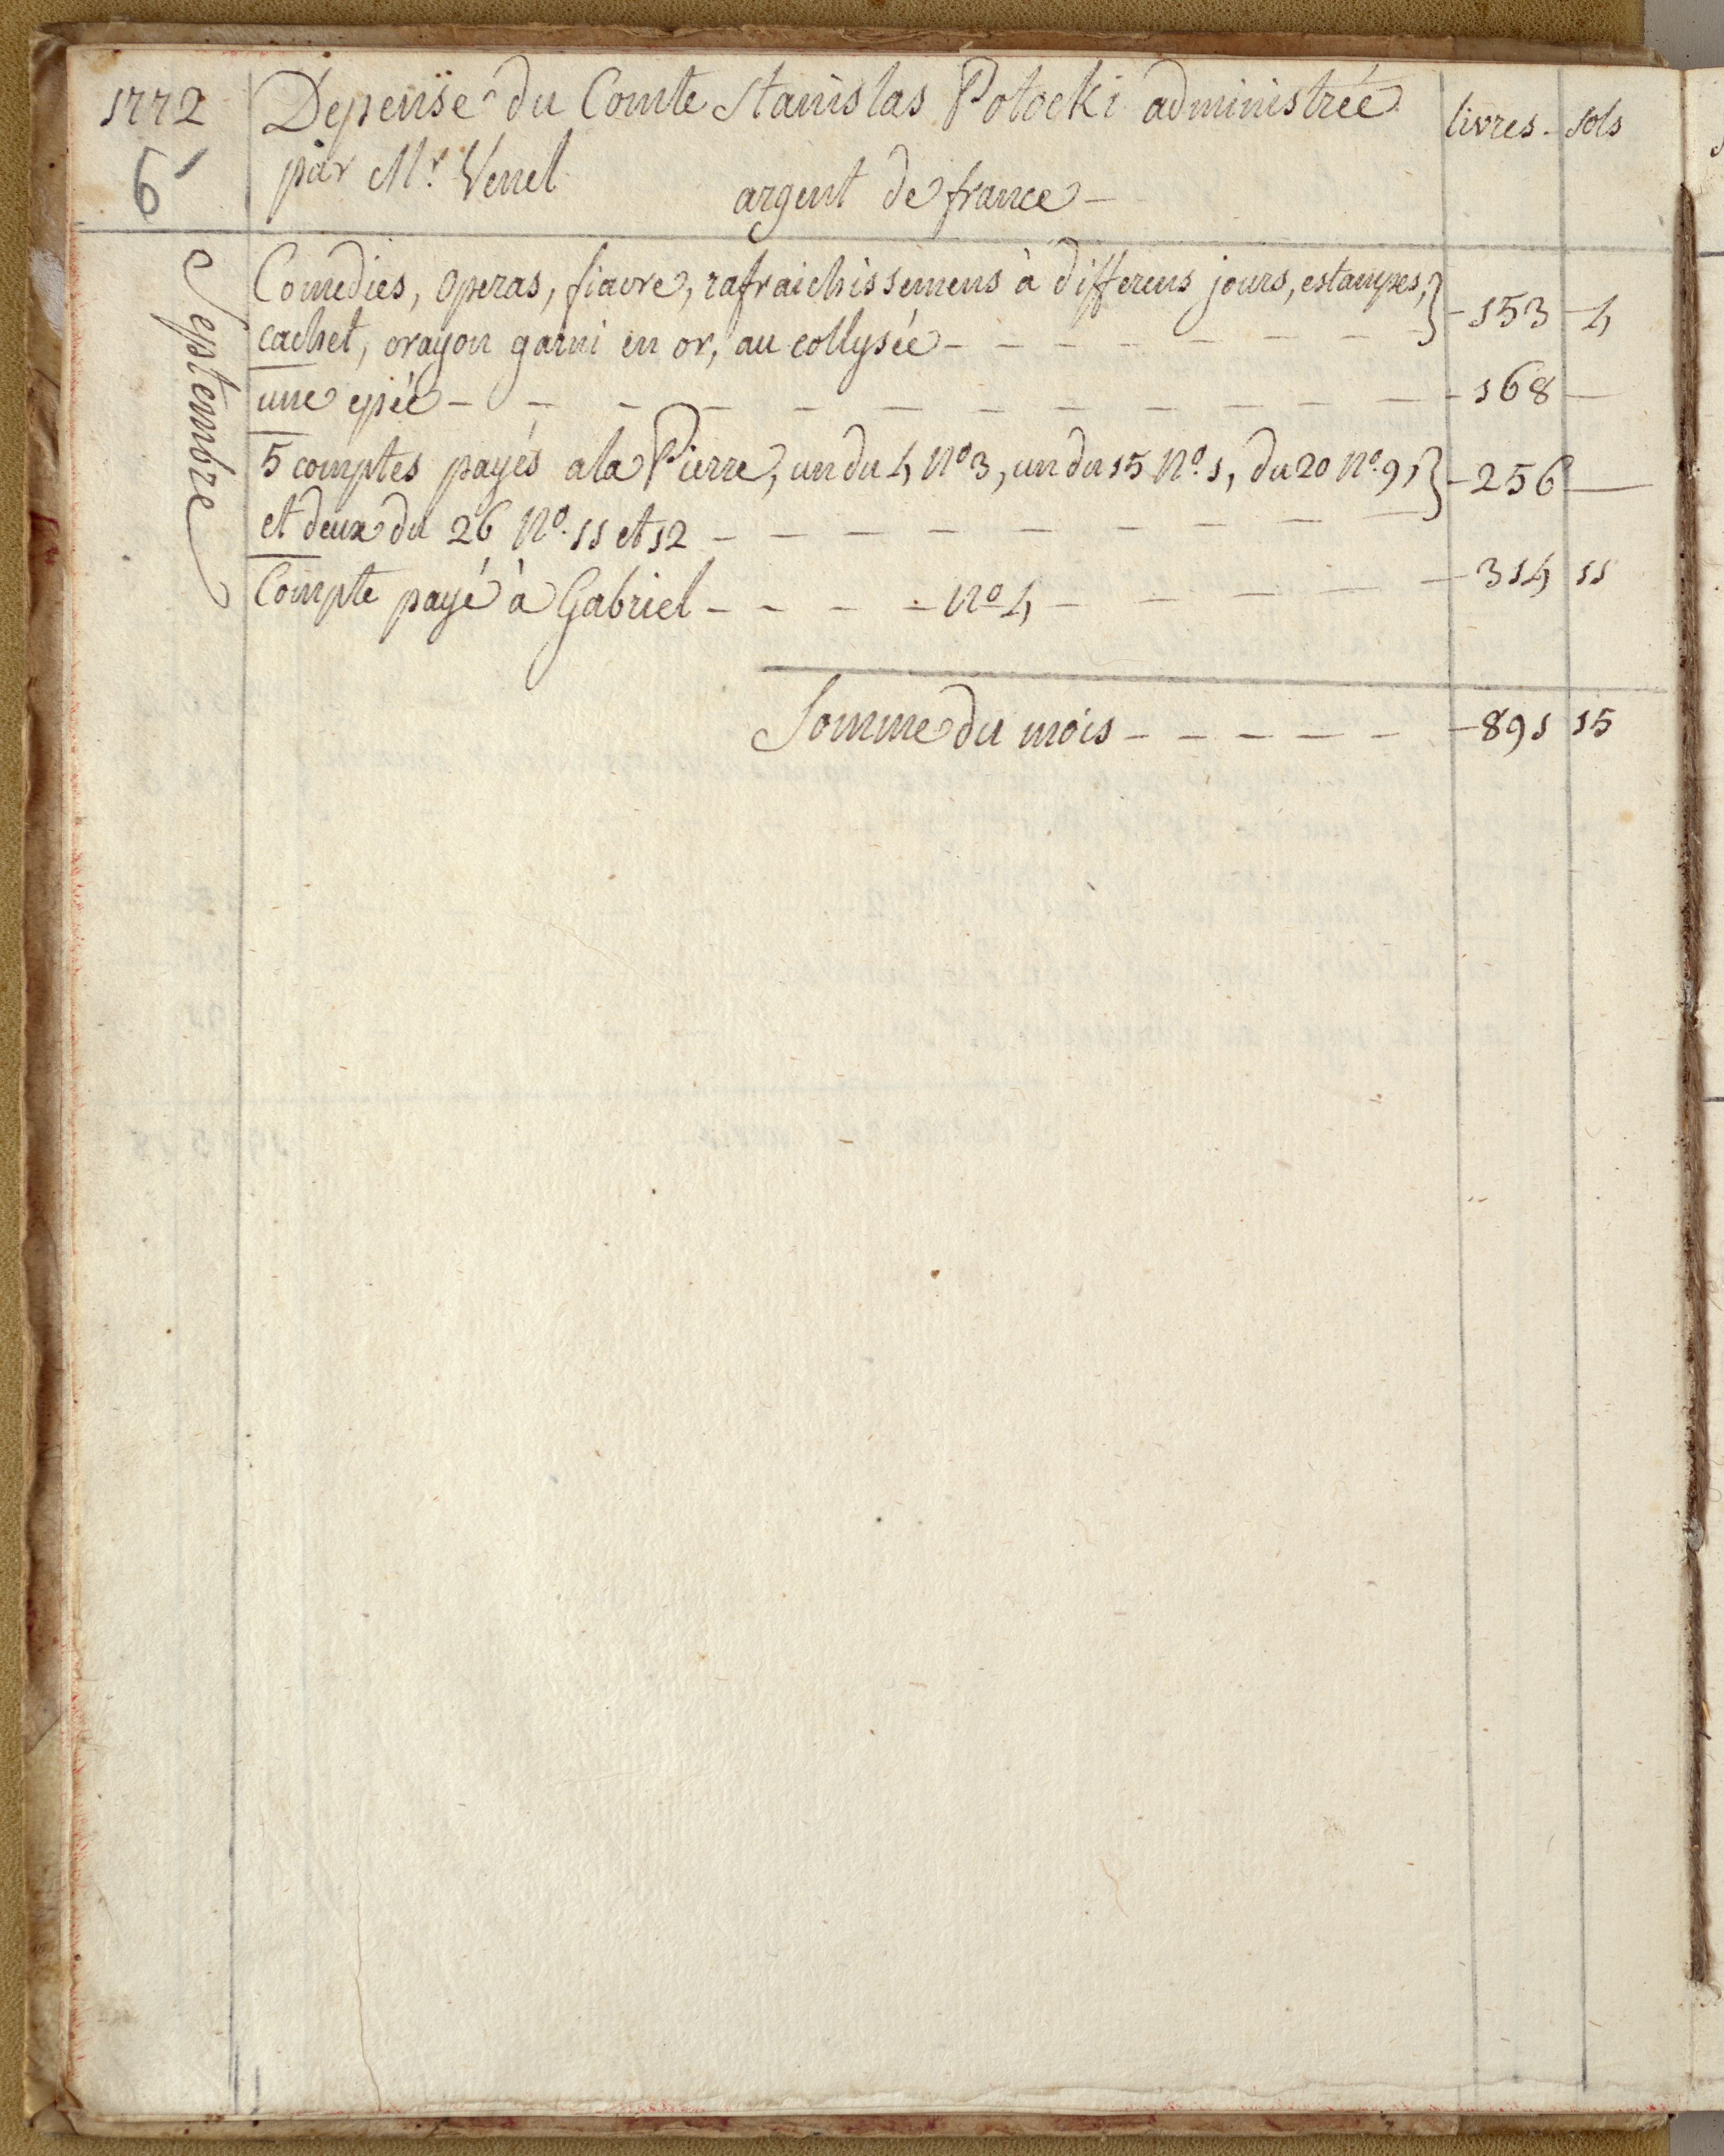 1772
6
Depense du Comte Stanislas Potocki administrée livres - sols
par Mr. Venel
argent de france -
Septembre
Comedies, operas, fiacre, rafraichissemens à differens jours, estampes, } - 153 - 4
cachet, crayon garni en or, au collysée - - - - - - - -
une epée - - - - - - - - - - - - - 168 -
5 comptes payés a la Pierre, un du 4 No 3, un du 15 No. 1, du 20 No. 9, } - 256 -
et deux du 26 No. 11 et 12 - - - - - - - -
Compte payé à Gabriel - - - - No 4 - - - - - 314 11
Somme du mois - - - - - - 891 15